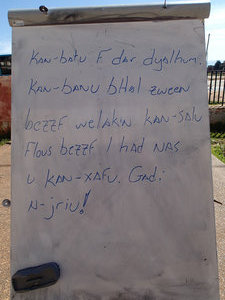 Kan-batu F dar dyalhum.
Kan-banu bHal zween
bezzf welakin kan-salu
Flous bezzf l had NAS
u kan-xafu. Gadi
N-jriu!